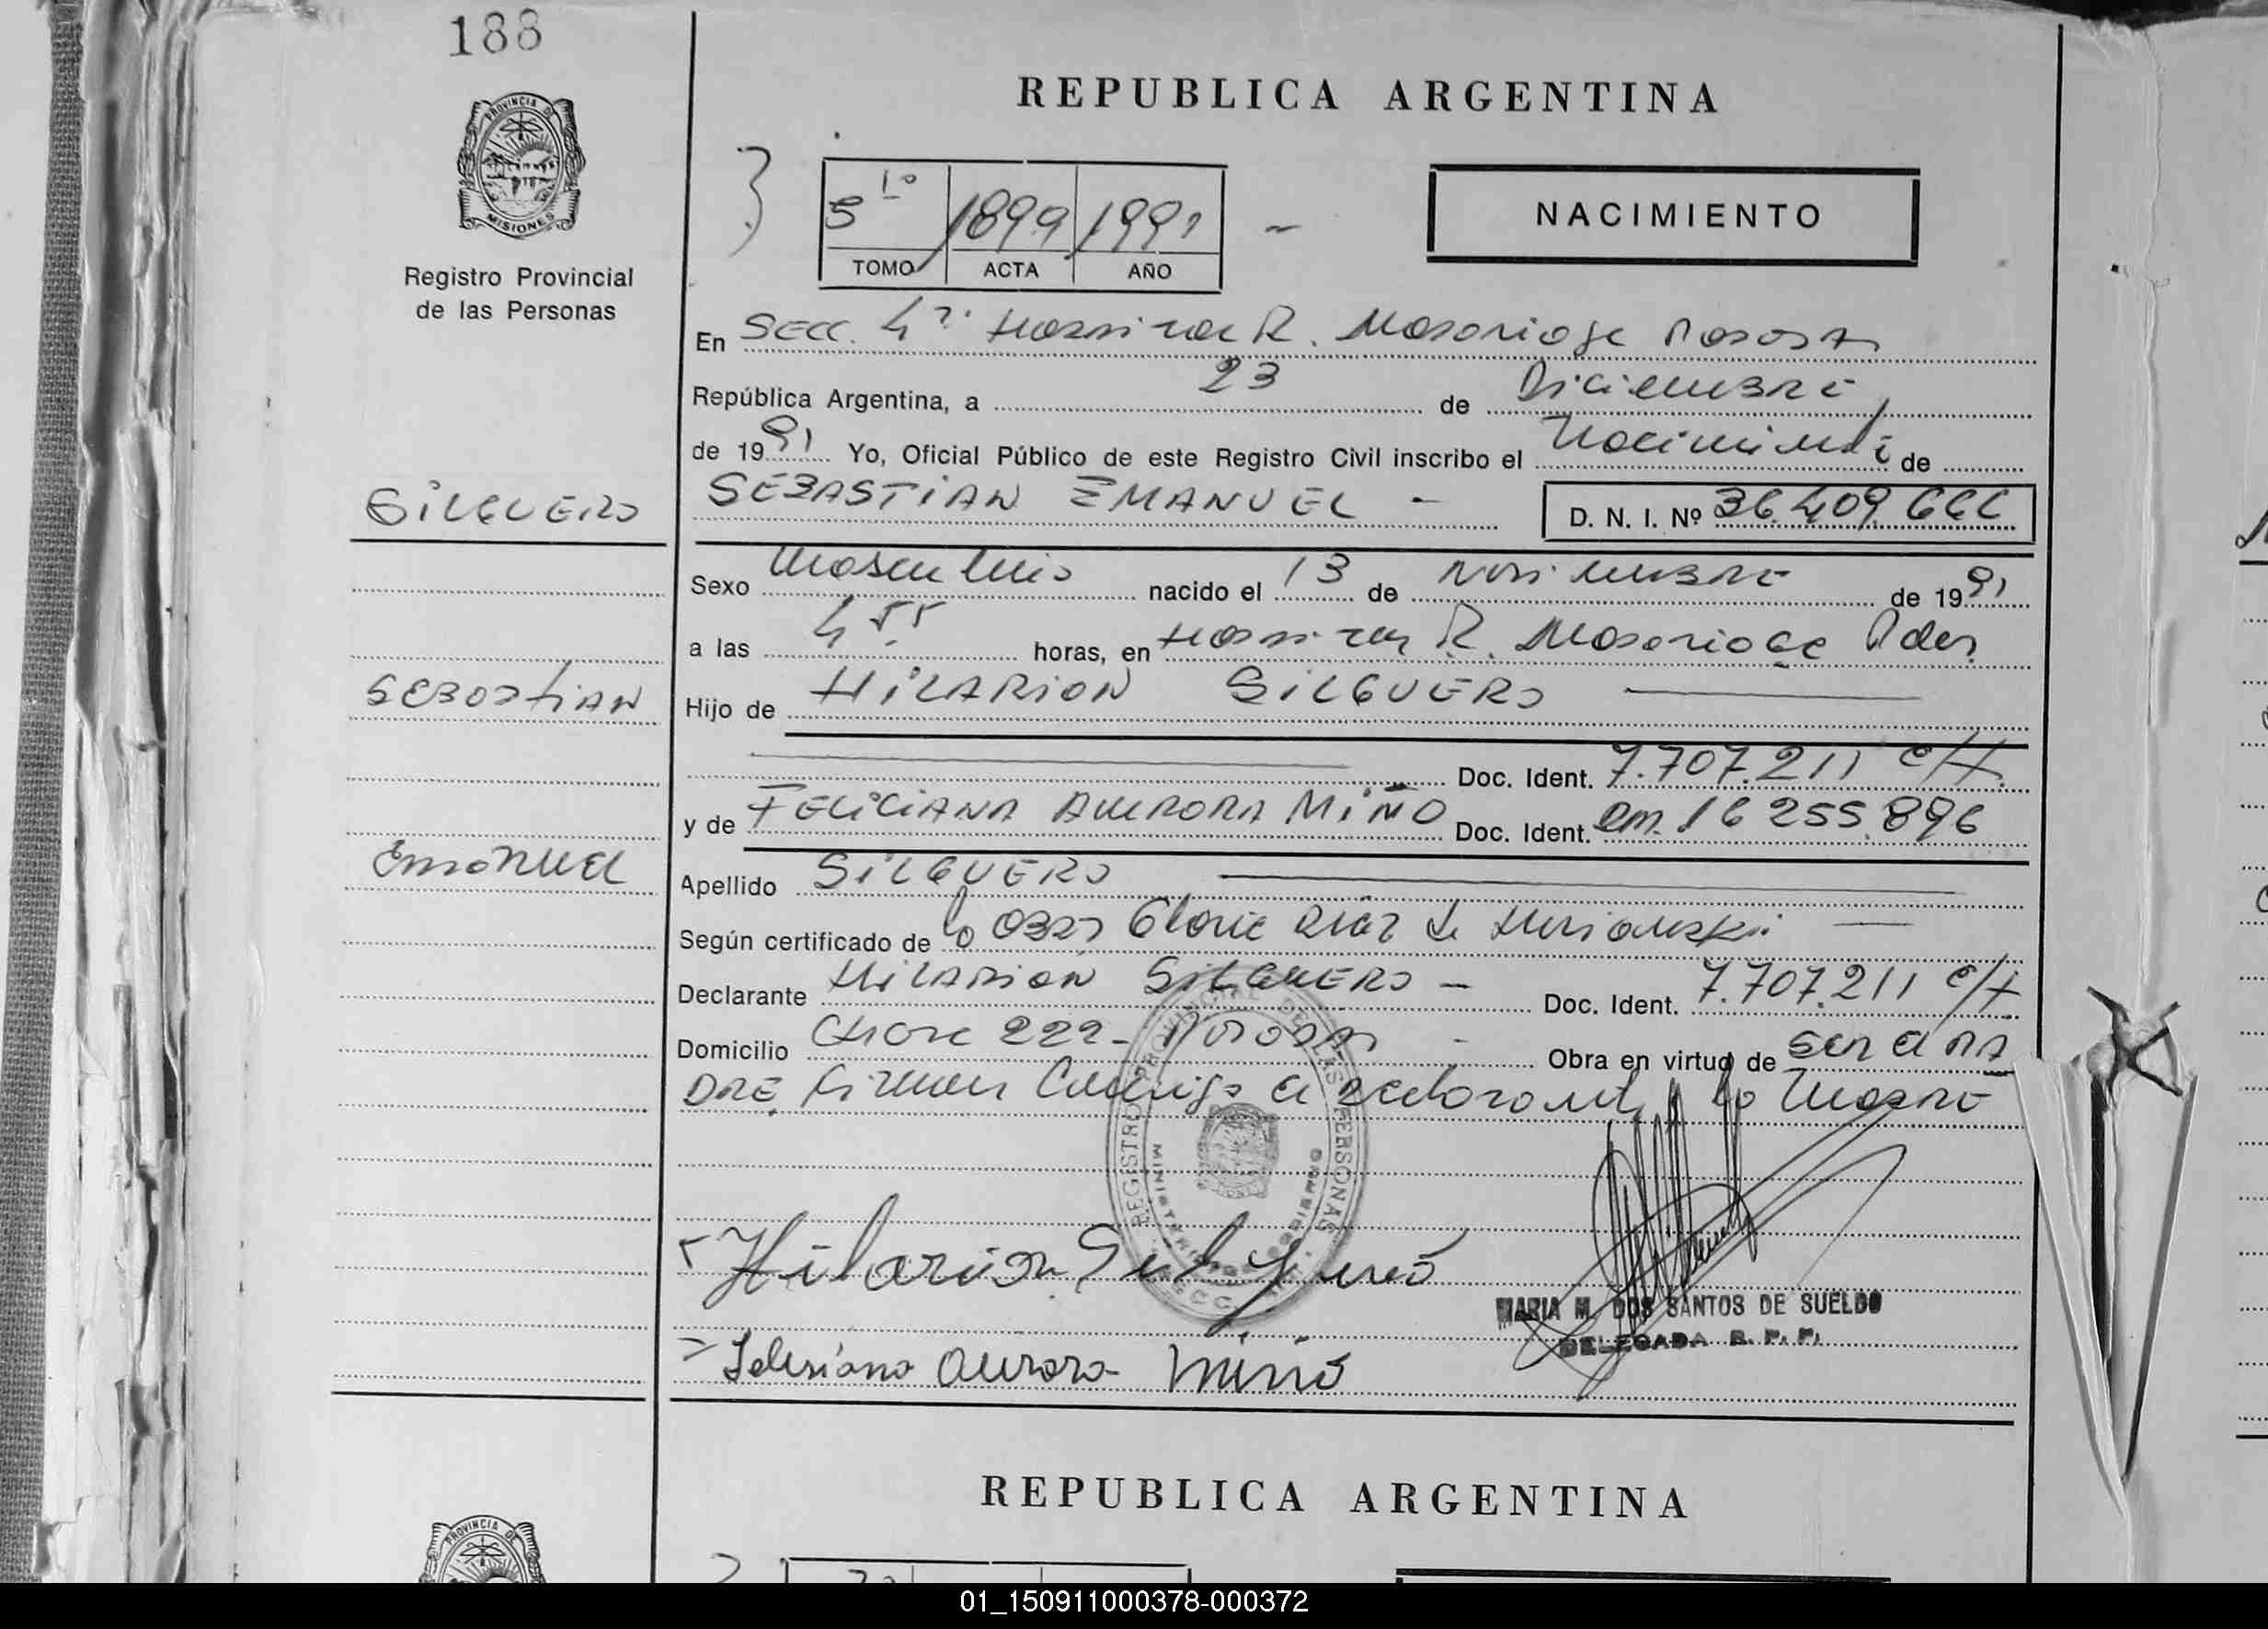 188
REPUBLICA ARGENTINA
PROVINCIA DE
MISIONES
Registro Provincial
de las Personas
5 1º 1899 1991
TOMO ACTA AÑO
NACIMIENTO
En SECC. 4ª R. Posadas
República Argentina, a 23 de Diciembre
de 1991 Yo, Oficial Público de este Registro Civil inscribo el Nacimiento de
SILGUERO
SEBASTIAN EMANUEL -
D. N. I. Nº 36.409.666
Sexo Masculino nacido el 13 de Noviembre de 1991
a las 4 55 horas, en Hospital R. Madariaga Pdas
SEBASTIAN
Hijo de HILARION SILGUERO
Doc. Ident. 7.707.211 C/I.
y de FELICIANA AURORA MIÑO Doc. Ident. 16 255.896
Emanuel
Apellido SILGUERO
Según certificado de la OBST Gloria DIAZ de
Declarante HILARION SILGUERO - Doc. Ident. 7.707.211 C/I
Domicilio 222 - Posadas - Obra en virtud de ser el PA
DRE Firman Conmigo el declarante y la Madre
REGISTRO PROVINCIAL DE LAS PERSONAS
MINISTERIO DE GOBIERNO
Hilarion Silguero
Felisiana Aurora Miño
MARIA M. DOS SANTOS DE SUELDO
DELEGADA R. P. P.
REPUBLICA ARGENTINA
PROVINCIA DE
01_150911000378-000372